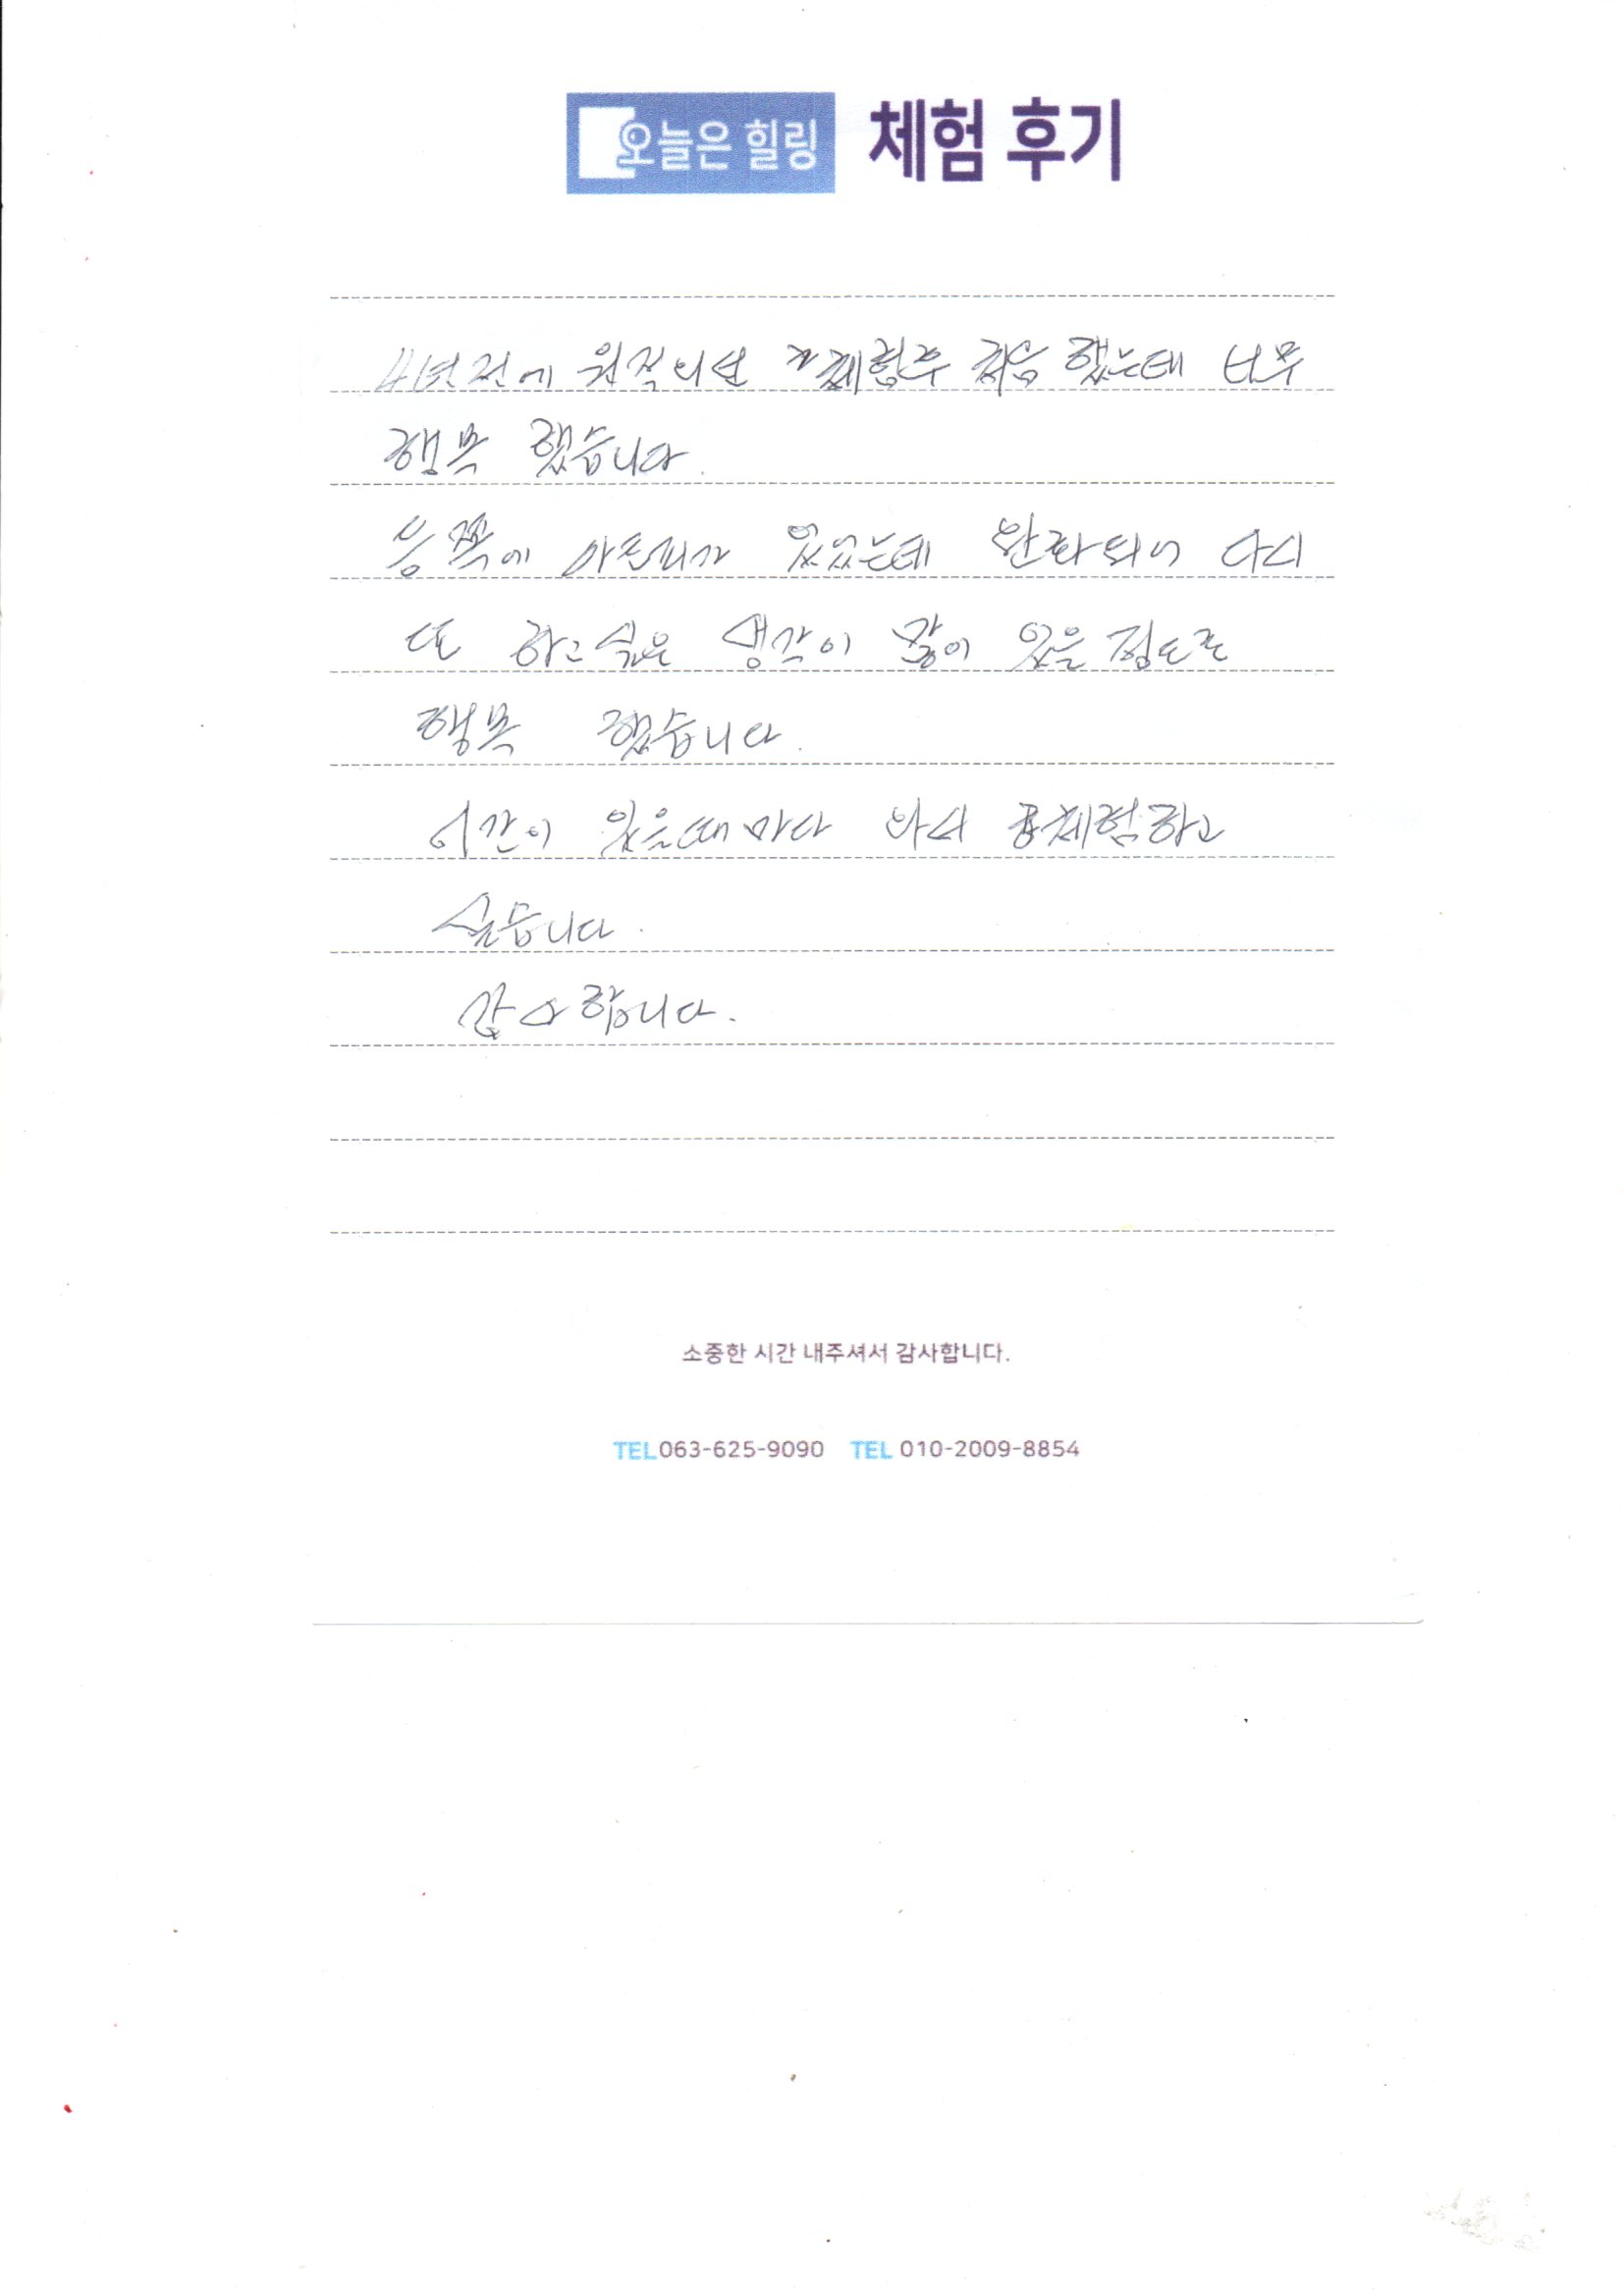 오늘은 힐링 체험 후기
4년전에 원적외선 체험후 처음 했는데 너무
행복 했습니다.
등쪽에 아토피가 있었는데 완화되어 다시
또 하고싶은 생각이 많이 있을 정도로
행복 했습니다.
시간이 있을때마다 와서 체험하고
싶습니다.
감사합니다.
소중한 시간 내주셔서 감사합니다.
TEL 063-625-9090 TEL 010-2009-8854